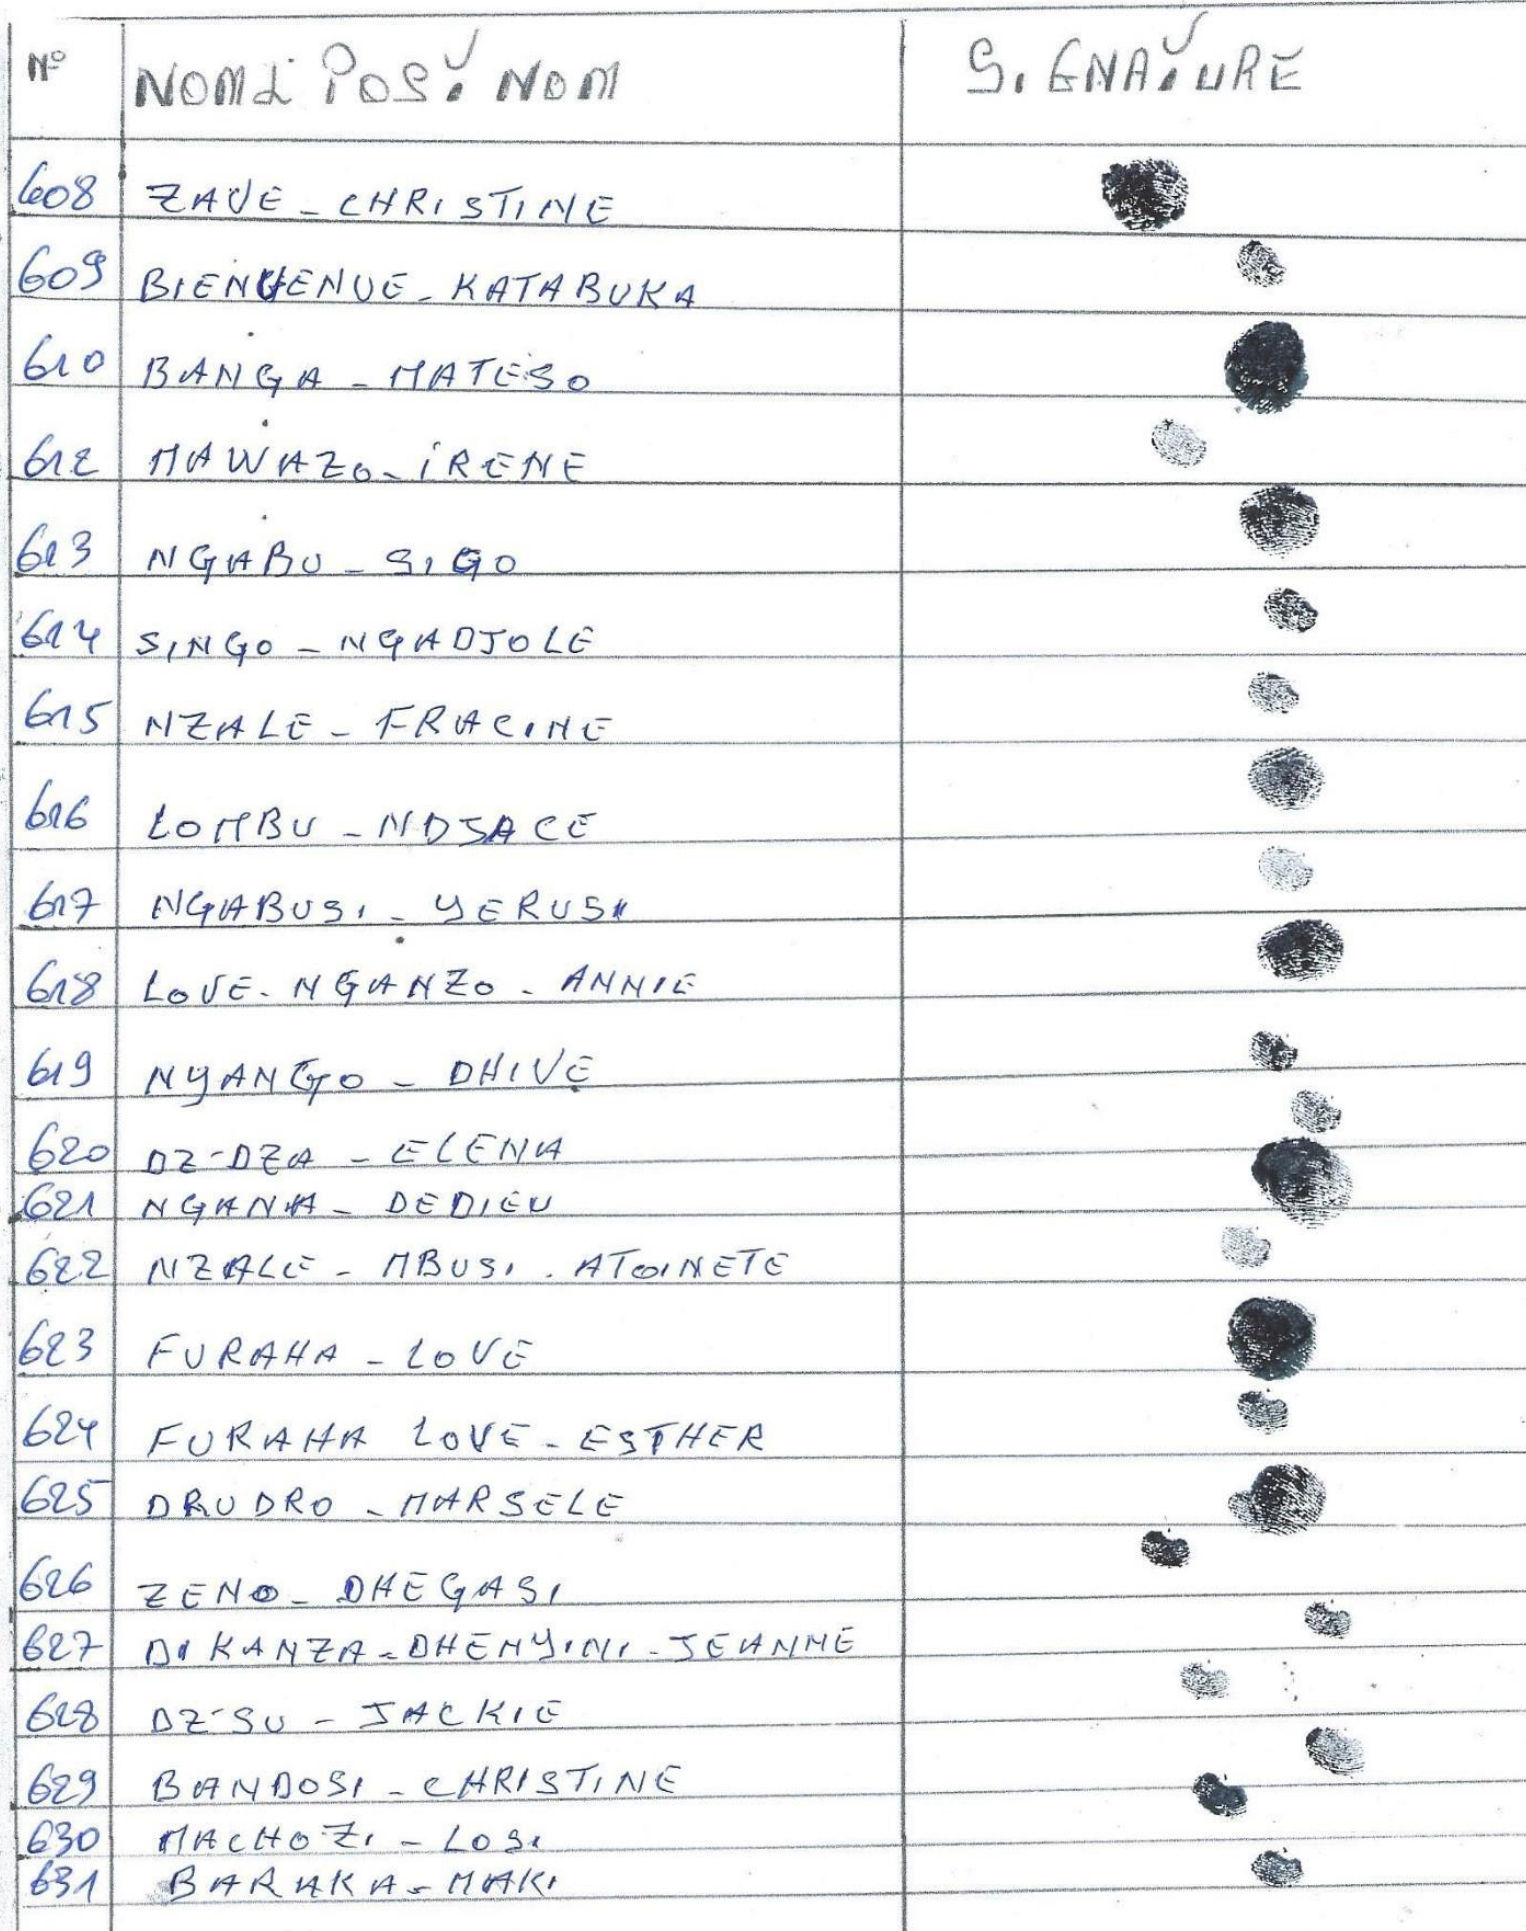 N° NOM & POST NOM SIGNATURE
608 ZAVE - CHRISTINE
609 BIENVENUE - KATABUKA
610 BANGA - MATESO
612 MAWAZO - IRENE
613 NGABU - SIGO
614 SINGO - NGADJOLE
615 NZALE - FRACINE
616 LOMBU - NDJACE
617 NGABUSI - YERUSI
618 LOVE - NGANZO - ANNIE
619 NYANGO - DHIVE
620 DZ-DZA - ELENA
621 NGANA - DEDIEU
622 NZALE - MBUSI - ATOINETE
623 FURAHA - LOVE
624 FURAHA LOVE - ESTHER
625 DRUDRO - MARSELE
626 ZENO - DHEGASI
627 DIKANZA - DHENYINI - JEANNE
628 DZ-SU - JACKIE
629 BANDOSI - CHRISTINE
630 MACHOZI - LOSI
631 BARAKA - MAKI